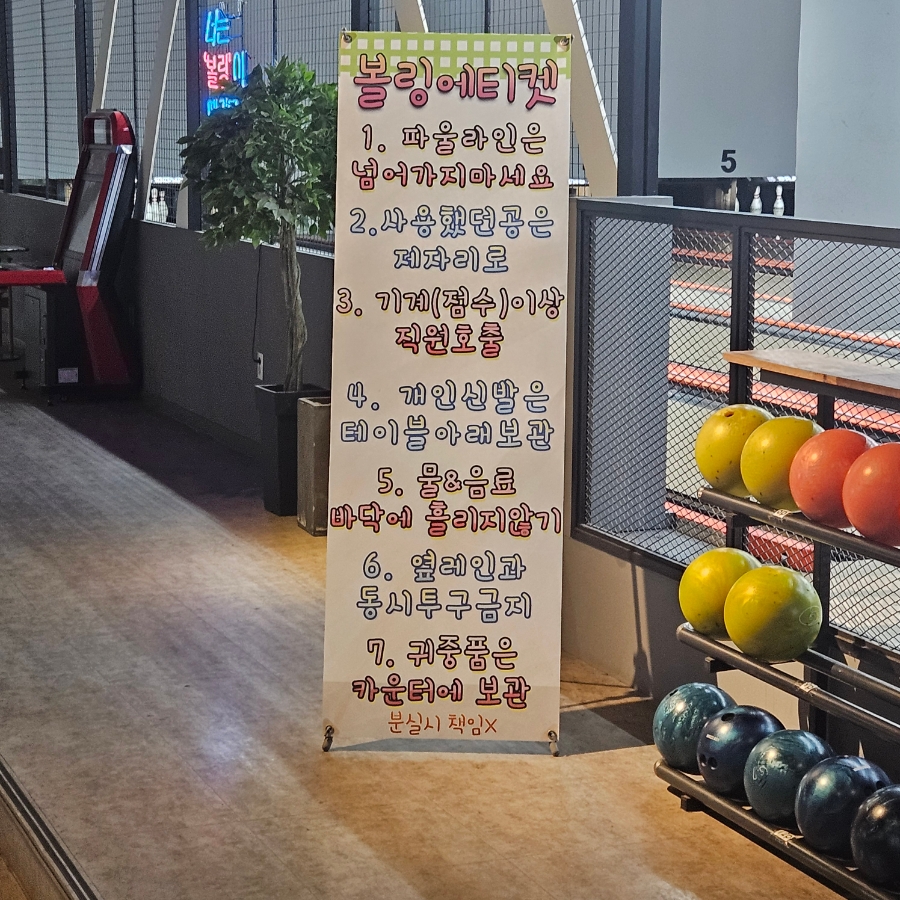 너는
볼링에티켓
1. 파울라인은
넘어가지마세요
2.사용했던공은
제자리로
3. 기계(점수)이상
직원호출
4. 개인신발은
테이블아래보관
5. 물&음료
바닥에 흘리지않기
6. 옆레인과
동시투구금지
7. 귀중품은
카운터에 보관
분실시 책임X
5